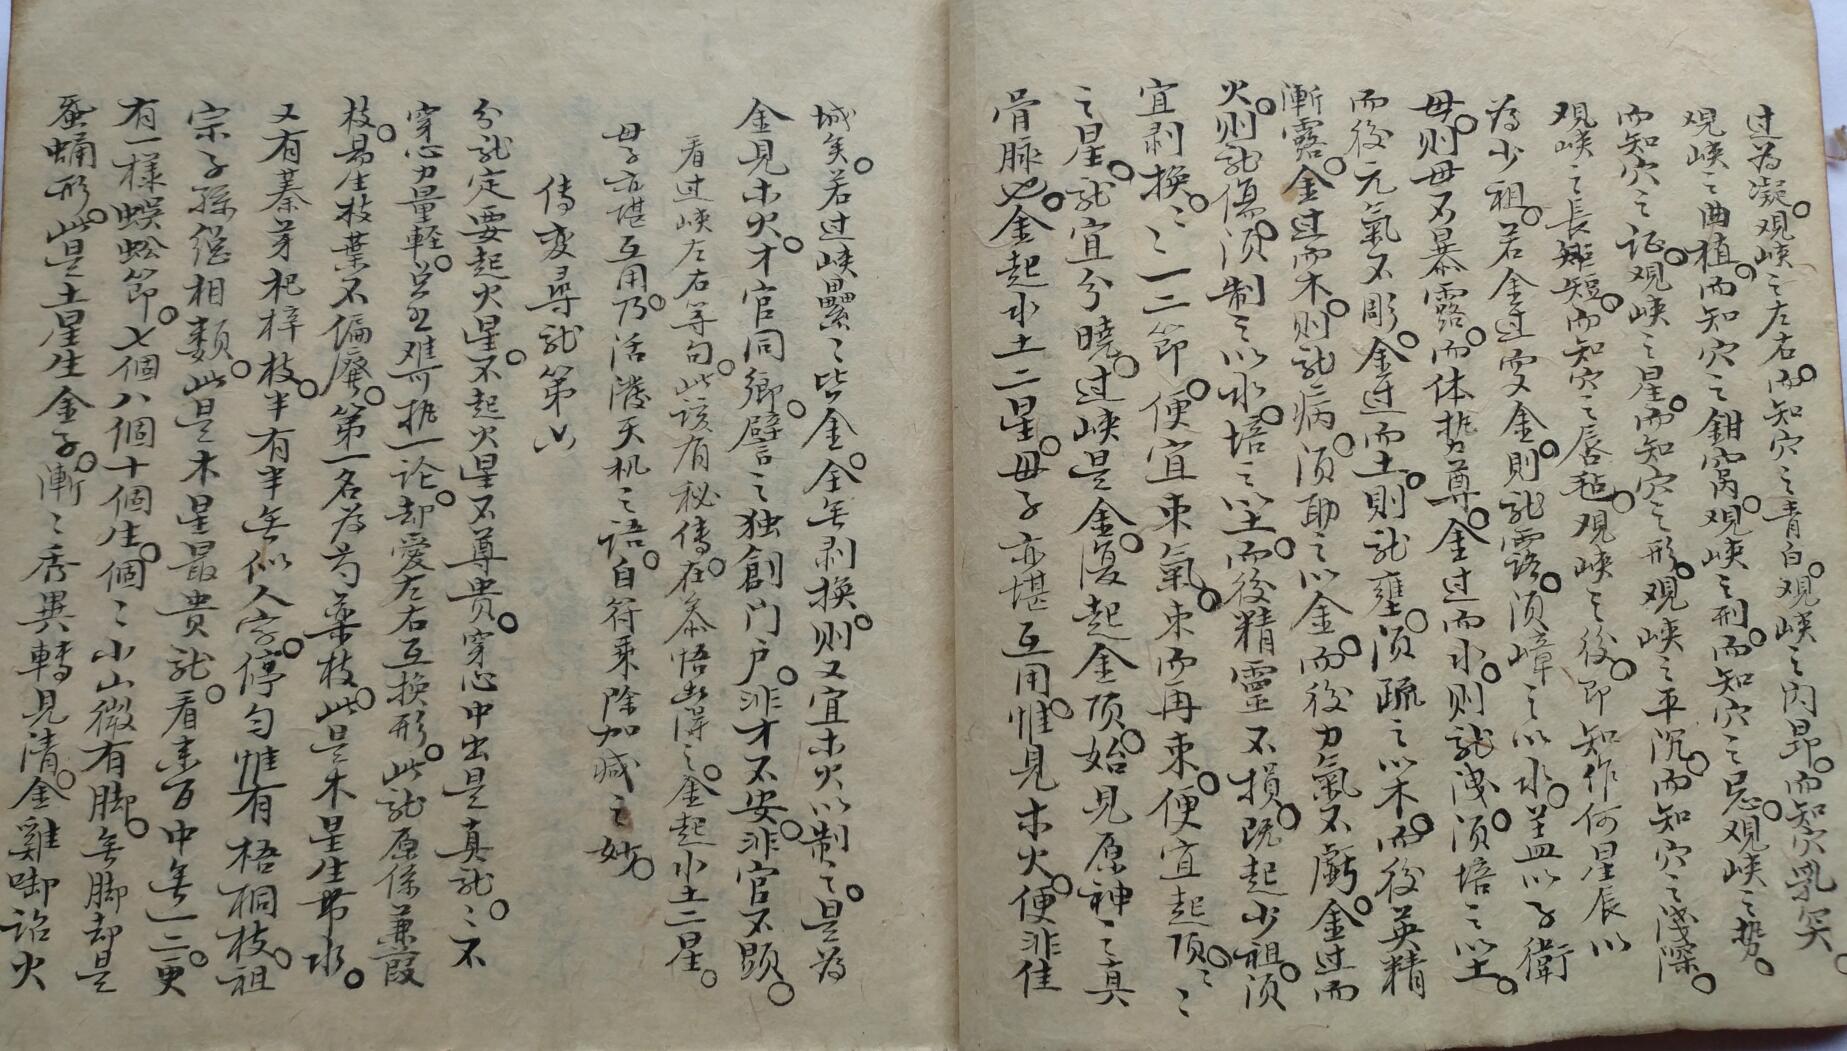 过为凝观峡之左右而知穴之青白观峡之内昂而知穴乳突
观峡之曲植而知穴之钳窝观峡之刑而知穴之忌观峡之势
而知穴之证观峡之星而知穴之形观峡之平沉而知穴之浅深
观峡之長短而知穴之唇毡观峡之後即知作何星辰以
为少祖若金过变金則龍露須嶂之以水盖以子衛
母则母不暴露而体势尊金过而水则龍洩須培之以土
而後元氣不彫金过而土則龍壅須疏之以木而後英精
漸露金过而木则龍病須助之以金而後力氣不虧金过而
火则龍傷須制之以水培之以土而後精靈不損既起少祖須
宜剥换之一二節便宜束氣束而再束便宜起顶之
之星龍宜分曉过峡是金復起金顶始見原神之真
骨脉也金起水土二星母子亦堪互用惟見木火便非佳
城矣若过峡纍之皆金全無剥换则又宜木火以制之是为
金見木火才官同鄉譬之独創门户非才不安非官不顕
看过峡左右等句此该有秘傳在叅悟得之金起水土二星
母子亦堪互用乃活潑天机之语自符乘除加减之妙
傳变尋龍第六
分龍定要起火星不起火星不尊贵穿心中出是真龍之不
穿心力量軽登可執一论却愛左右互换形此龍原係兼葭
枝易生枝葉不偏廢第一名为芍藥枝此是木星生带水
又有蓁芽杞梓枝半有半無似人字停匀惟有梧桐枝祖
宗子孫總相類此是木星最贵龍看来百中無一二更
有一樣蜈蚣節七個八個十個生個之小山微有脚無脚却是
蚕蛹形此是土星生金子漸之秀異轉見清金雞啣诏火